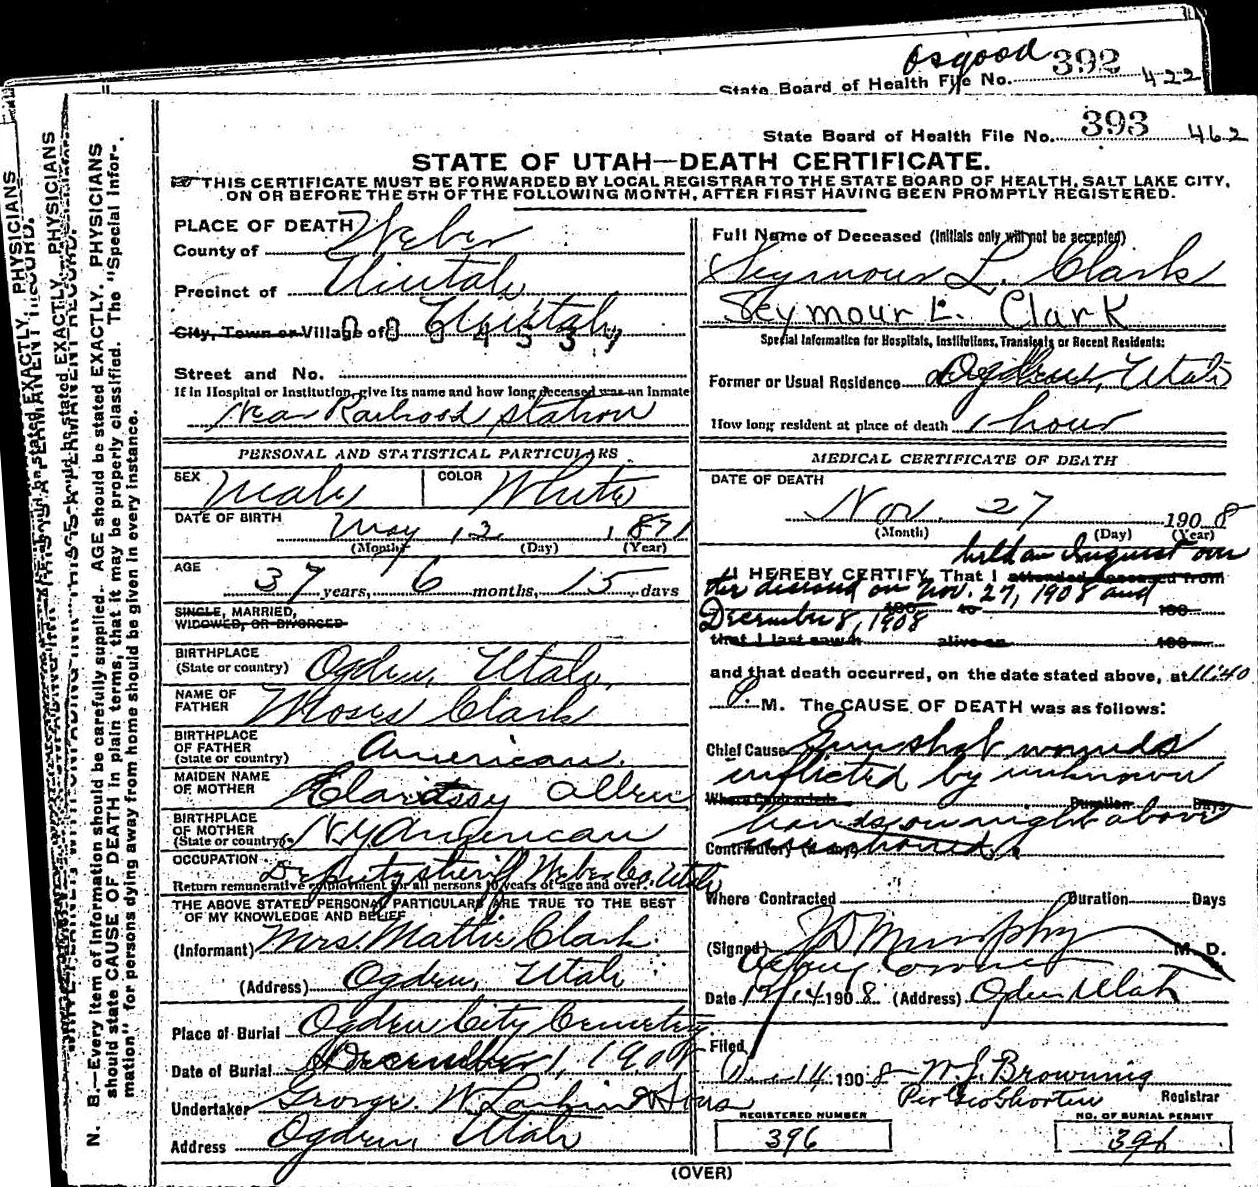 Osgood
State Board of Health File No. 392 422
State Board of Health File No. 393 462
STATE OF UTAH—DEATH CERTIFICATE.
THIS CERTIFICATE MUST BE FORWARDED BY LOCAL REGISTRAR TO THE STATE BOARD OF HEALTH, SALT LAKE CITY,
ON OR BEFORE THE 5TH OF THE FOLLOWING MONTH, AFTER FIRST HAVING BEEN PROMPTLY REGISTERED.
PLACE OF DEATH
County of Weber
Precinct of Uintah
City, Town or Village of Uintah
Street and No.
If in Hospital or Institution, give its name and how long deceased was an inmate
Near Railroad Station
PERSONAL AND STATISTICAL PARTICULARS
SEX Male COLOR White
DATE OF BIRTH May 12 1871
(Month) (Day) (Year)
AGE 37 years, 6 months, 15 days
SINGLE, MARRIED,
WIDOWED, OR DIVORCED
BIRTHPLACE
(State or country) Ogden, Utah,
NAME OF
FATHER Moses Clark
BIRTHPLACE
OF FATHER
(State or country) American.
MAIDEN NAME
OF MOTHER Allen
BIRTHPLACE
OF MOTHER
(State or country) NY American
OCCUPATION Deputy sheriff Weber Co. Utah
Return remunerative employment for all persons 10 years of age and over.
THE ABOVE STATED PERSONAL PARTICULARS ARE TRUE TO THE BEST
OF MY KNOWLEDGE AND BELIEF
(Informant) Mrs. Mattie Clark.
(Address) Ogden, Utah
Place of Burial Ogden City Cemetery
Date of Burial December 1, 190
Undertaker George W. Larkin & Sons
Address Ogden, Utah
Full Name of Deceased (Initials only will not be accepted)
Seymour L. Clark
Seymour L. Clark
Special Information for Hospitals, Institutions, Transients or Recent Residents:
Former or Usual Residence Ogden, Utah
How long resident at place of death 1 hour
MEDICAL CERTIFICATE OF DEATH
DATE OF DEATH
Nov. 27 1908
(Month) (Day) (Year)
held an Inquest over
I HEREBY CERTIFY, That I attended deceased from
the deceased on Nov. 27, 1908 and
December 8, 1908
that I last saw h alive on 190
and that death occurred, on the date stated above, at 11:40
P. M. The CAUSE OF DEATH was as follows:
Chief Cause Gunshot wounds
inflicted by unknown
Where Contracted Duration Days
hands on night above
Contributory (if any)
mentioned.
Where Contracted Duration Days
(Signed) J D Murphy M. D.
Deputy Coroner
Date 12/14 1908 (Address) Ogden Utah
Filed
14 1908 W. J. Browning
Registrar
REGISTERED NUMBER
396
NO. OF BURIAL PERMIT
396
(OVER)
N. B.—Every item of information should be carefully supplied. AGE should be stated EXACTLY. PHYSICIANS
should state CAUSE OF DEATH in plain terms, that it may be properly classified. The "Special Infor-
mation" for persons dying away from home should be given in every instance.